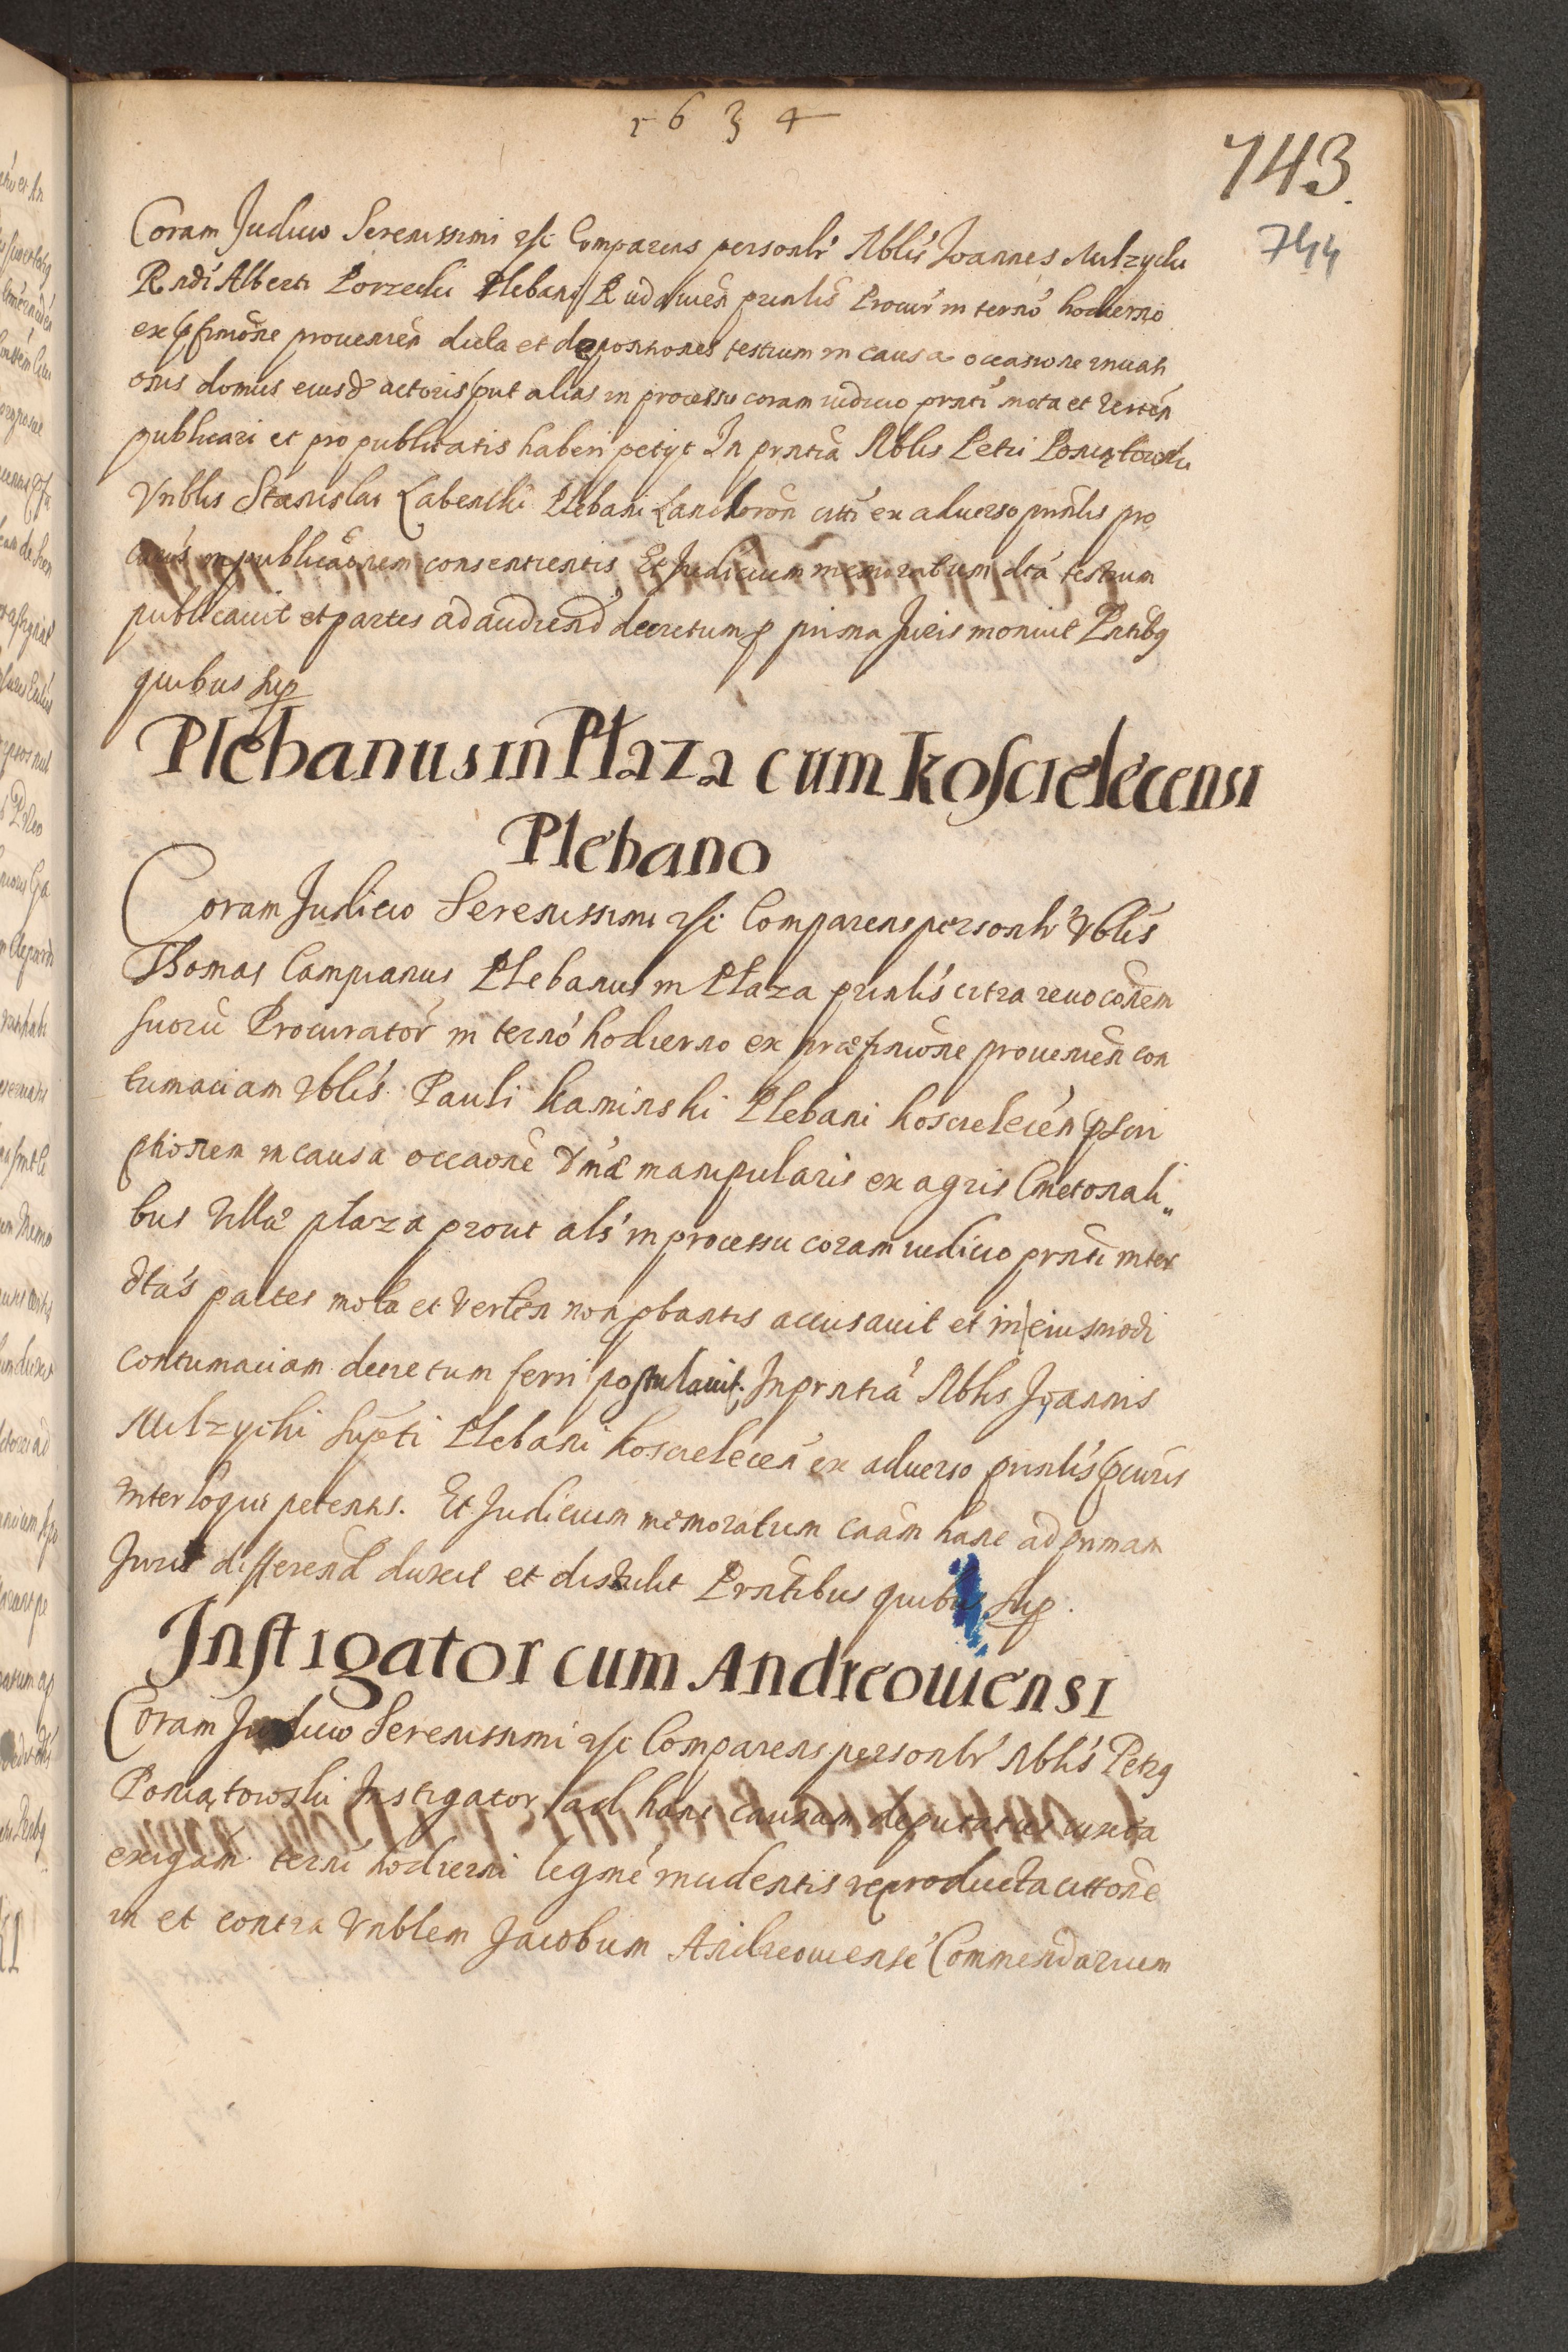 1634
743.
744
Coram Judicio Serenissimi etc Comparens personlr Nblis Joannes Milzycki
Rndi Alberti Porzecki Plebani Rudawien prinlis Procur in termo hodierno
ex pfimone provenien dicla et depositiones testium in causa occasione invasi
onis domus eiusd actoris put alias in processu coram iudicio prnti mota et verten
publicari et pro publicatis haberi petyt In prntia Nblis Petri Poniątowski
Vnblis Stanislai Labencki Plebani Lanckoron citti ex adverso prinlis pro
curis in publicaonem consentientis Et Judicium memoratum dta testium
publicavit et partes ad audiend decretum p prima Juris monuit Prntibq
quibus sup
Plebanus in Płaza cum Koscielecensi
Plebano
Coram Judicio Serenissimi etc Comparens personlr Vblis
Thomas Campianus Plebanus in Płaza prinlis citra revoconem
suoru Procurator in termo hodierno ex præfinione provenien con
tumaciam Vblis Pauli Kaminski Plebani Koscielecen pscri
ptionem in causa occaone Xmæ manipularis ex agris Cmetonali„
bus Villæ płaza prout als in processu coram iudicio prnti inter
dtas partes mota et verten non pbantis accusavit et in eiusmodi
contumaciam decretum ferri postulavit. In prntia Nblis Joannis
Milzycki supti Plebani Koscielecen ex adverso prinlis pcuris
interloqui petentis. Et Judicium memoratum caam hanc ad primam
Juris differend duxit et distulit Prntibus quibus sup.
Instigator cum Andreoviensi
Coram Judicio Serenissimi etc Comparens personlr Nblis Petrq
Poniątowski Instigator ad hanc causam deputatus iuxta
exigam termi hodierni legme incidentis reproducta cittone
in et contra Vnblem Jacobum Andreoviense Commendarium